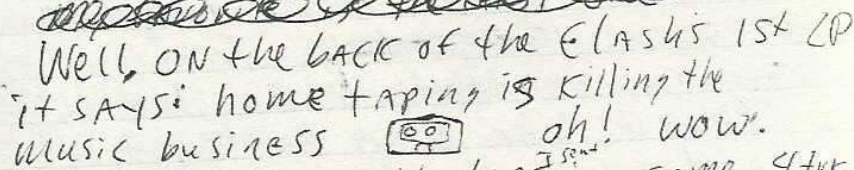 Well, ON the bACK of the ClASh's 1st LP
it sAys: home tAping is killing the
music business oh! wow.
I sent